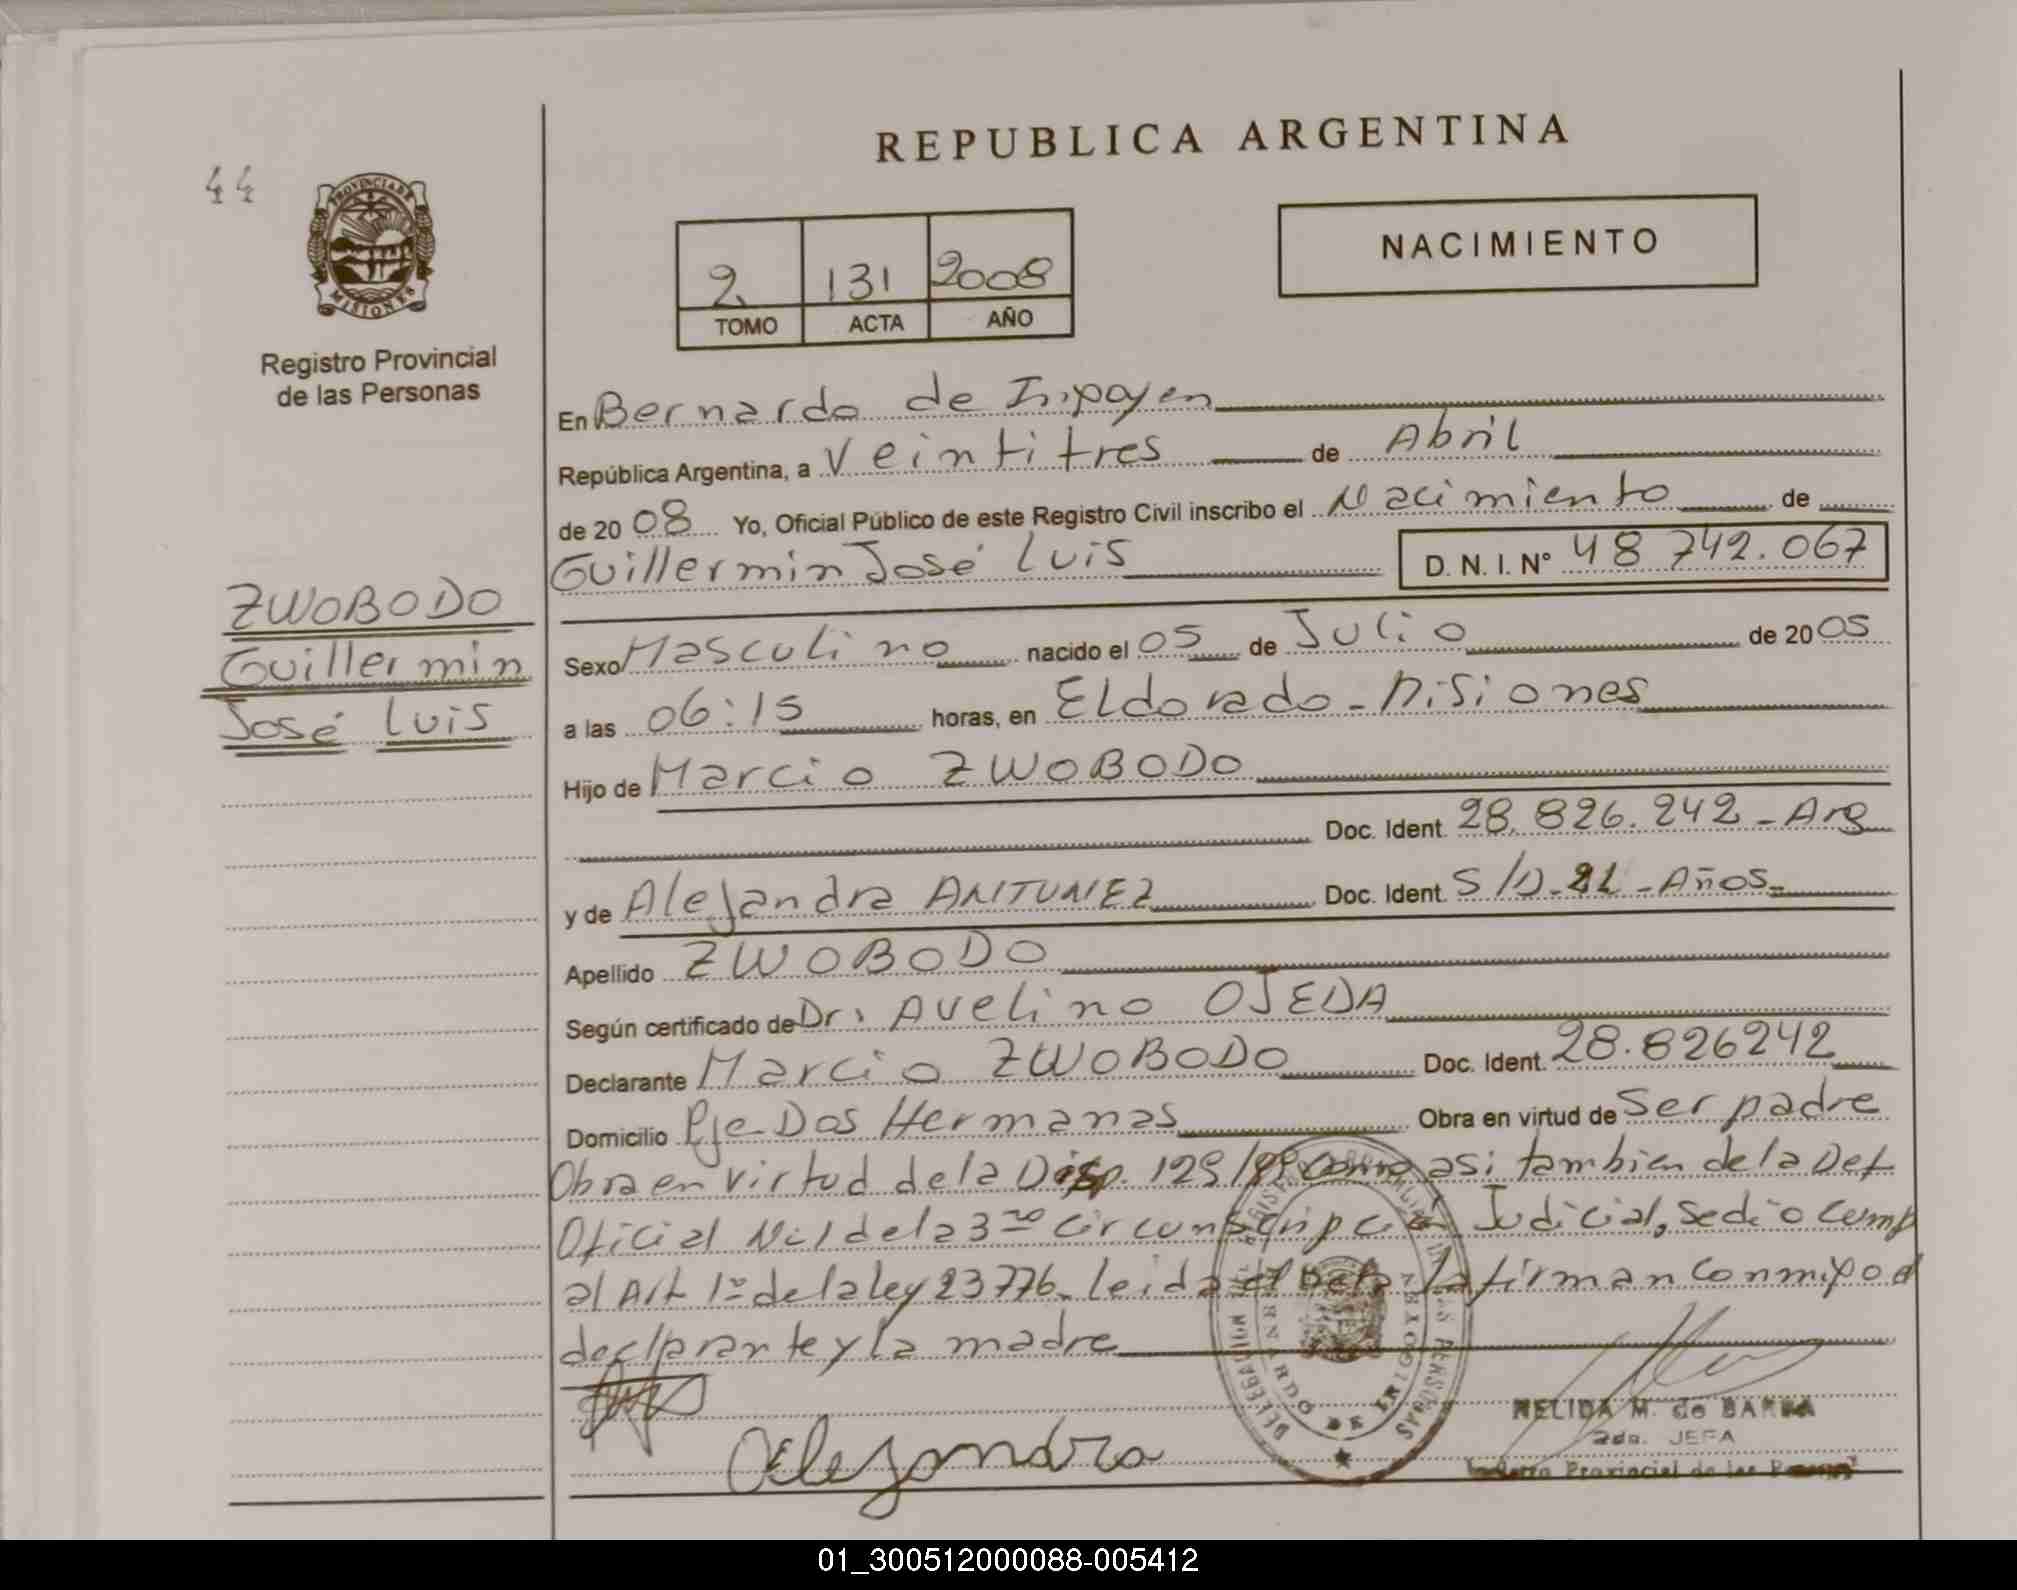 REPUBLICA ARGENTINA
44
PROVINCIA DE
MISIONES
Registro Provincial
de las Personas
NACIMIENTO
2 131 2008
TOMO ACTA AÑO
En Bernardo de Irigoyen
República Argentina, a Veintitres de Abril
de 20 08 Yo, Oficial Público de este Registro Civil inscribo el Nacimiento de
Guillermin José Luis D. N. I. Nº 48 742.067
ZWOBODO
Guillermin
José Luis
Sexo Masculino nacido el 05 de Julio de 20 05
a las 06:15 horas, en Eldorado - Misiones
Hijo de Marcio ZWOBODO
Doc. Ident. 28.826.242 - Arg
y de Alejandra ANTUNEZ Doc. Ident. S/D - 21 - Años -
Apellido ZWOBODO
Según certificado de Dr. Avelino OJEDA
Declarante Marcio ZWOBODO Doc. Ident. 28.826242
Domicilio Pje Dos Hermanas Obra en virtud de Ser padre
Obra en virtud de la Disp. 129/89 como asi tambien de la Def
Oficial Nº 1 de la 3ra Circunscripción Judicial, se dio cump
al Art 1º de la ley 23776. Leida el Acta la firman conmigo el
declarante y la madre
Alejandra
NELIDA M. de BARRA
2da. JEFA
Registro Provincial de las Personas
DELEGACION DEL REGISTRO PROVINCIAL DE LAS PERSONAS
BERNARDO DE IRIGOYEN
01_300512000088-005412